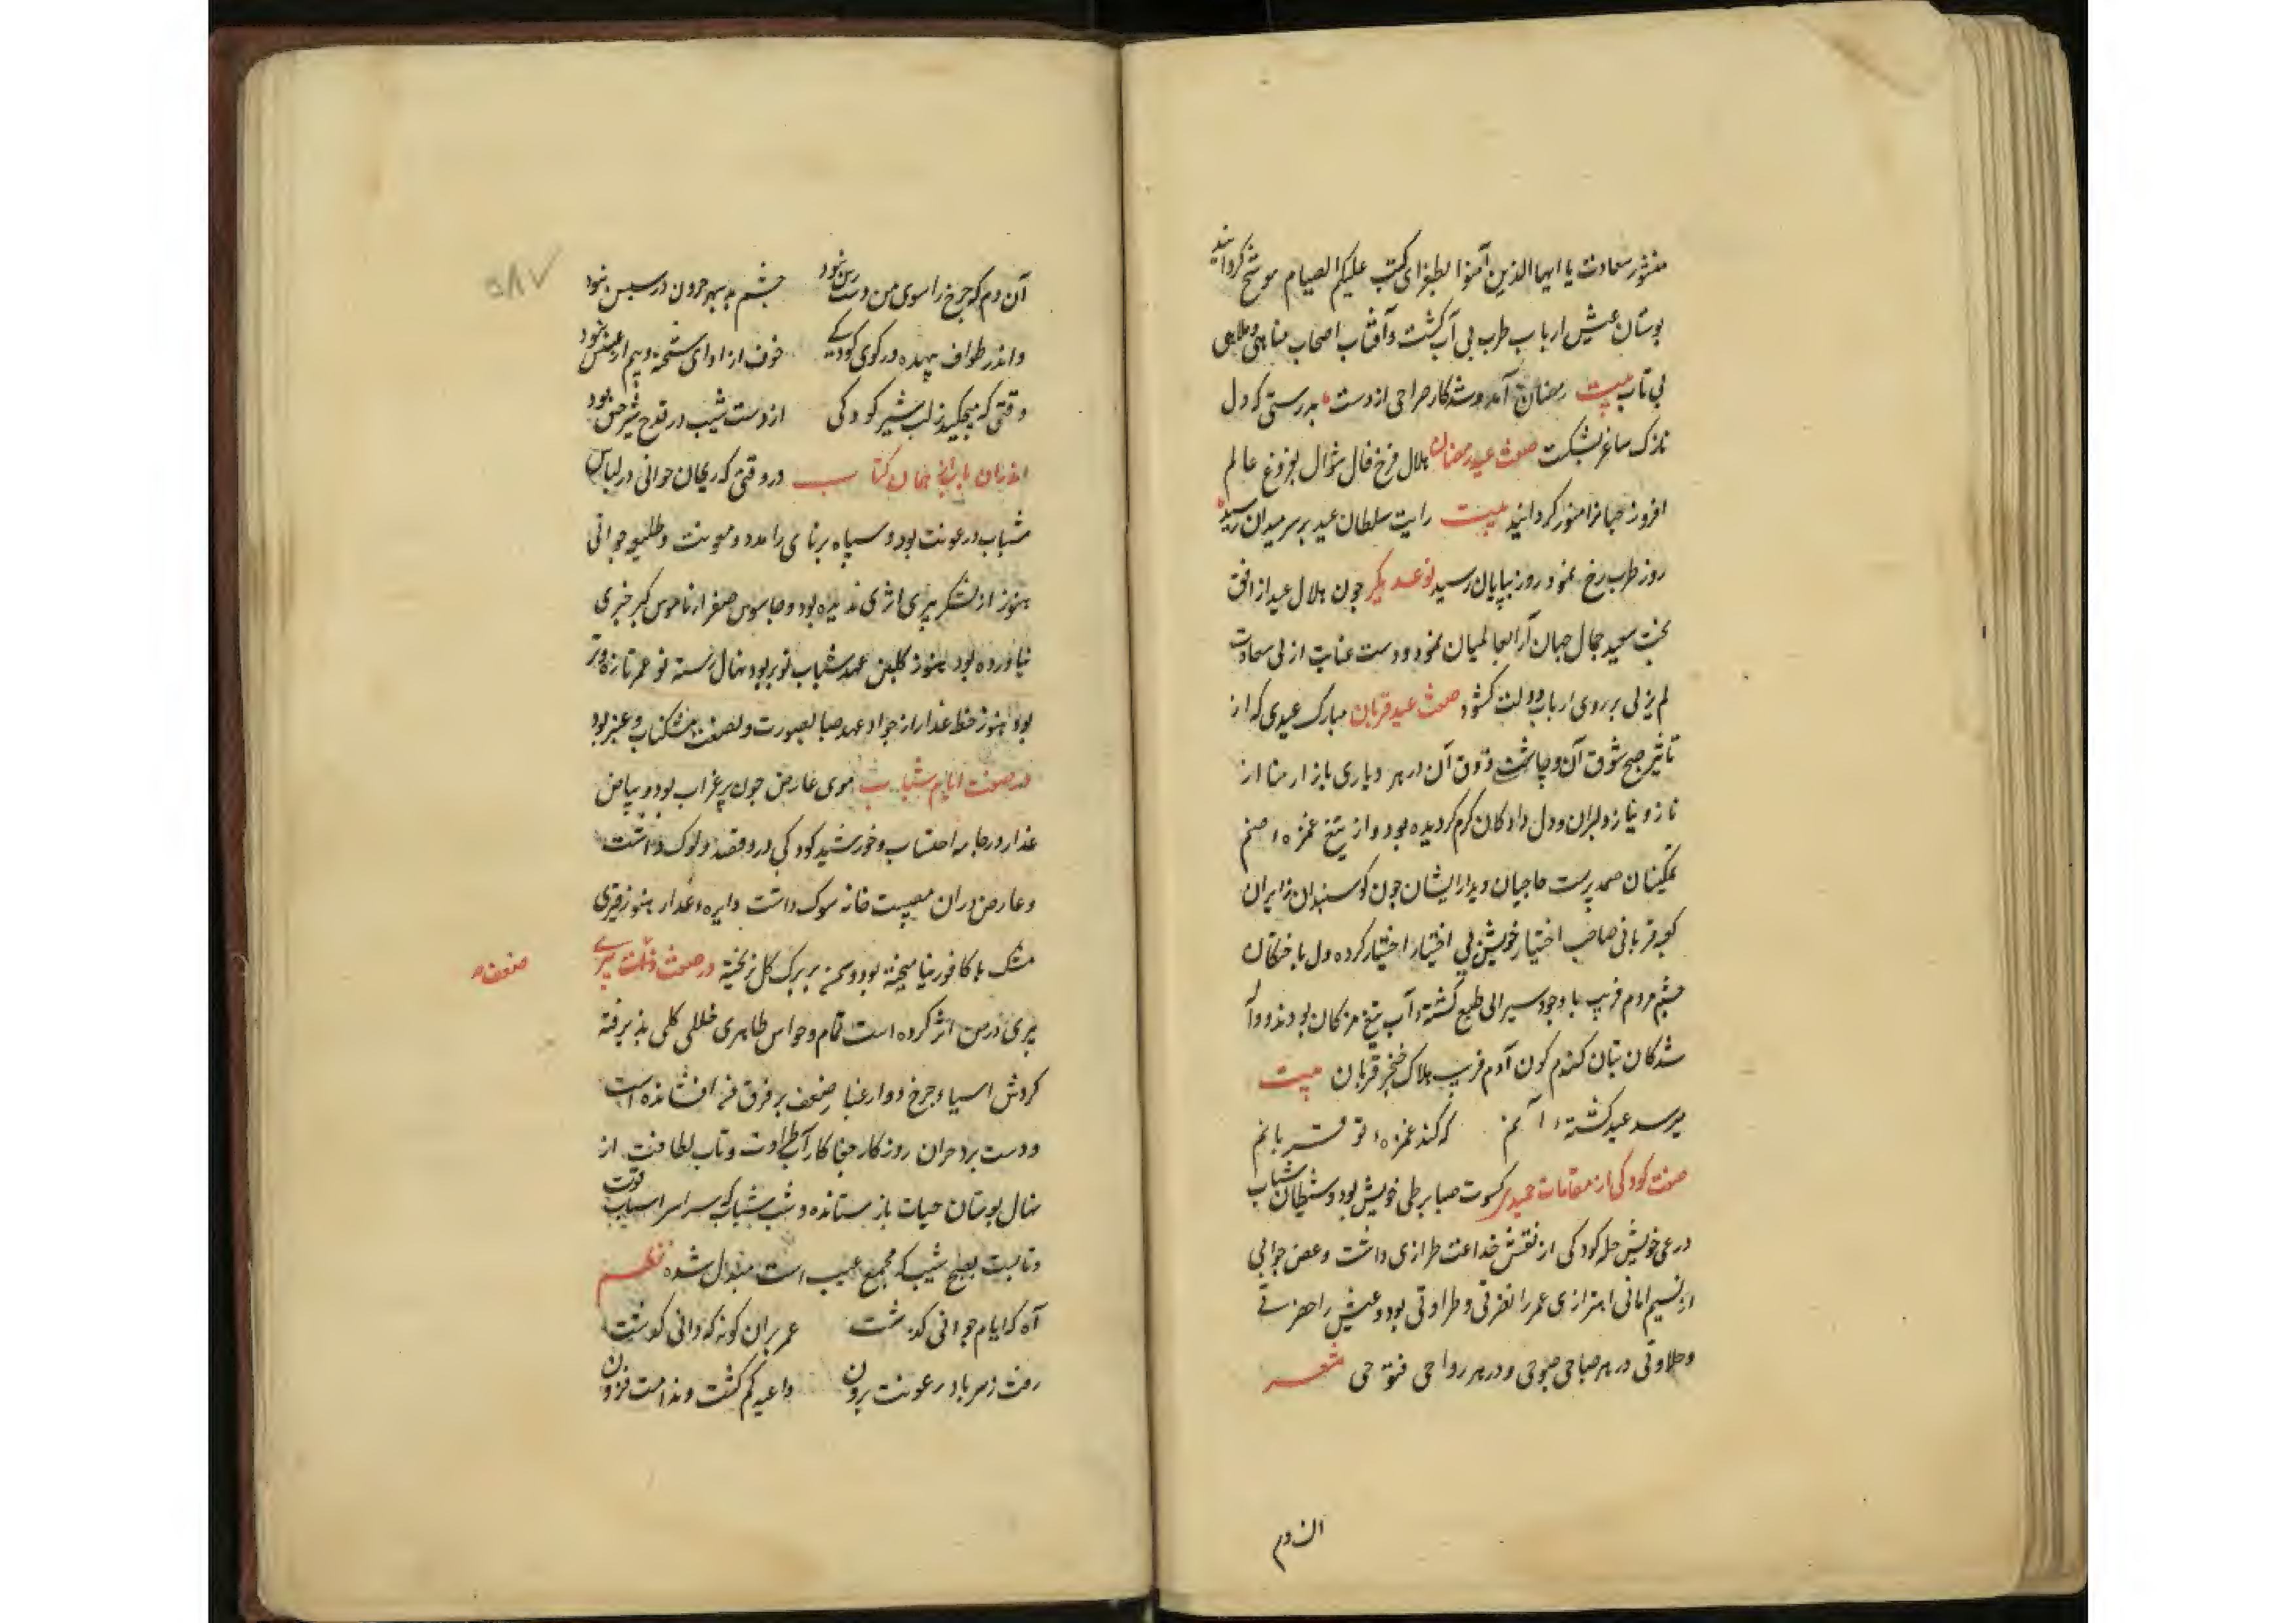 منشور سعادت یا ایها الذین آمنوا بطغرای کتب علیکم الصیام موشح کردانید
بوستان عیش ارباب طرب بی آب کشت و آفتاب اصحاب مناهی و ملاهی
بی تاب بیت رمضان آمد و شد کار صراحی از دست بدرستی که دل
نازک ساغر بشکست صفت عید رمضان هلال فرخ فال شوال بفروغ عالم
افروز جهانرا منور کردانید بیت رایت سلطان عید بر سر میدان رسید
روز طرب رخ نمود روزه بپایان رسید نوعدیکر جون هلال عید از افق
بخت سعید جمال جهان آرا بعالمیان نمود و دست عنایت ازلی سعادت
لم یزلی بر روی ارباب دولت کشود صفت عید قربان مبارک عیدی که از
تاثیر صبح شوق آن و چاشت ذوق آن در هر دیاری بازار منا از
ناز و نیاز دلبران و دل دادکان کرم کردیده بود و از تیغ غمزه صنم
تمکینان صمد پرست حاجیان دیدار ایشان جون کوسپندان زایران
کعبه قربانی صاحب اختیار خویش بی اختیار اختیار کرده دل باختکان
چشم مردم فریب با وجود سیرابی طبع کشته آب تیغ مژکان بودند و واله
شدکان بتان کندم کون آدم فریب هلاک خنجر قربان بیت
میرسد عید کشته آنم که کند غمزه تو قربانم
صفت کودکی از مقامات حمیدی کسوت صبا بر طی خویش بود و شیطان شباب
در غی خویش حله کودکی از نقش خداعت طرازی داشت و غصن جوانی
از نسیم امانی اهتزازی عمر را نضرتی و طراوتی بود و عیش را خضرتی
و حلاوتی در هر صباحی صبوحی و در هر رواحی فتوحی شعر
آن دم
۵۸۷
آن دم که چرخ را سوی من دست رس نبود چشم به سپهر حرون در سپس نبود
و اندر طواف بیهده در کوی کودکی خوف از اوای شحنه و بیم از عسس نبود
وقتی که میچکید ز لب شیر کودکی از دست شیب در قدح شیر خس نبود
در وقتی که ریحان جوانی در لباس
شباب رعونت بود و سپاه برنای را مدد و معونت و طلیعه جوانی
هنوز از لشکر پیری اثری ندیده بود و جاسوس صغر از ناموس کبر خبری
نیاورده بود هنوز کلبن عهد شباب نوبر بود نهال رسته نو عمر تازه و تر
بود هنوز خط عذار از جواد عهد صبا بصورت و بصفت مشکناب و عنبر بود
در صفت ایام شباب موی عارض جون پر غراب بود و بیاض
عذار در جامه احتساب و خورشید کودکی در وقفه دلوک داشت
و عارض دران مصیبت خانه سوک داشت دایره عذار هنوز قیری
مشک با کافور نیامیخته بود و سمن بر برک کل نریخته در صفت پیری
صفت
پیری در من اثر کرده است تمام و حواس ظاهری خللی کلی پذیرفته
کردش اسیا چرخ دوار غبار ضعف بر فرق من افشانده است
و دست برد حران روزکار جفا کار آب طراوت و تاب لطافت از
نهال بوستان حیات باز ستانده و شب شباب که سراسر اسباب قوت
و تابست بصبح شیب که مجمع عیب است مبدل شده نظم
آه که ایام جوانی کذشت عمر بران کونه که دانی کذشت
رفت ز سر باد رعونت برون داعیه کم کشت و ندامت فزون